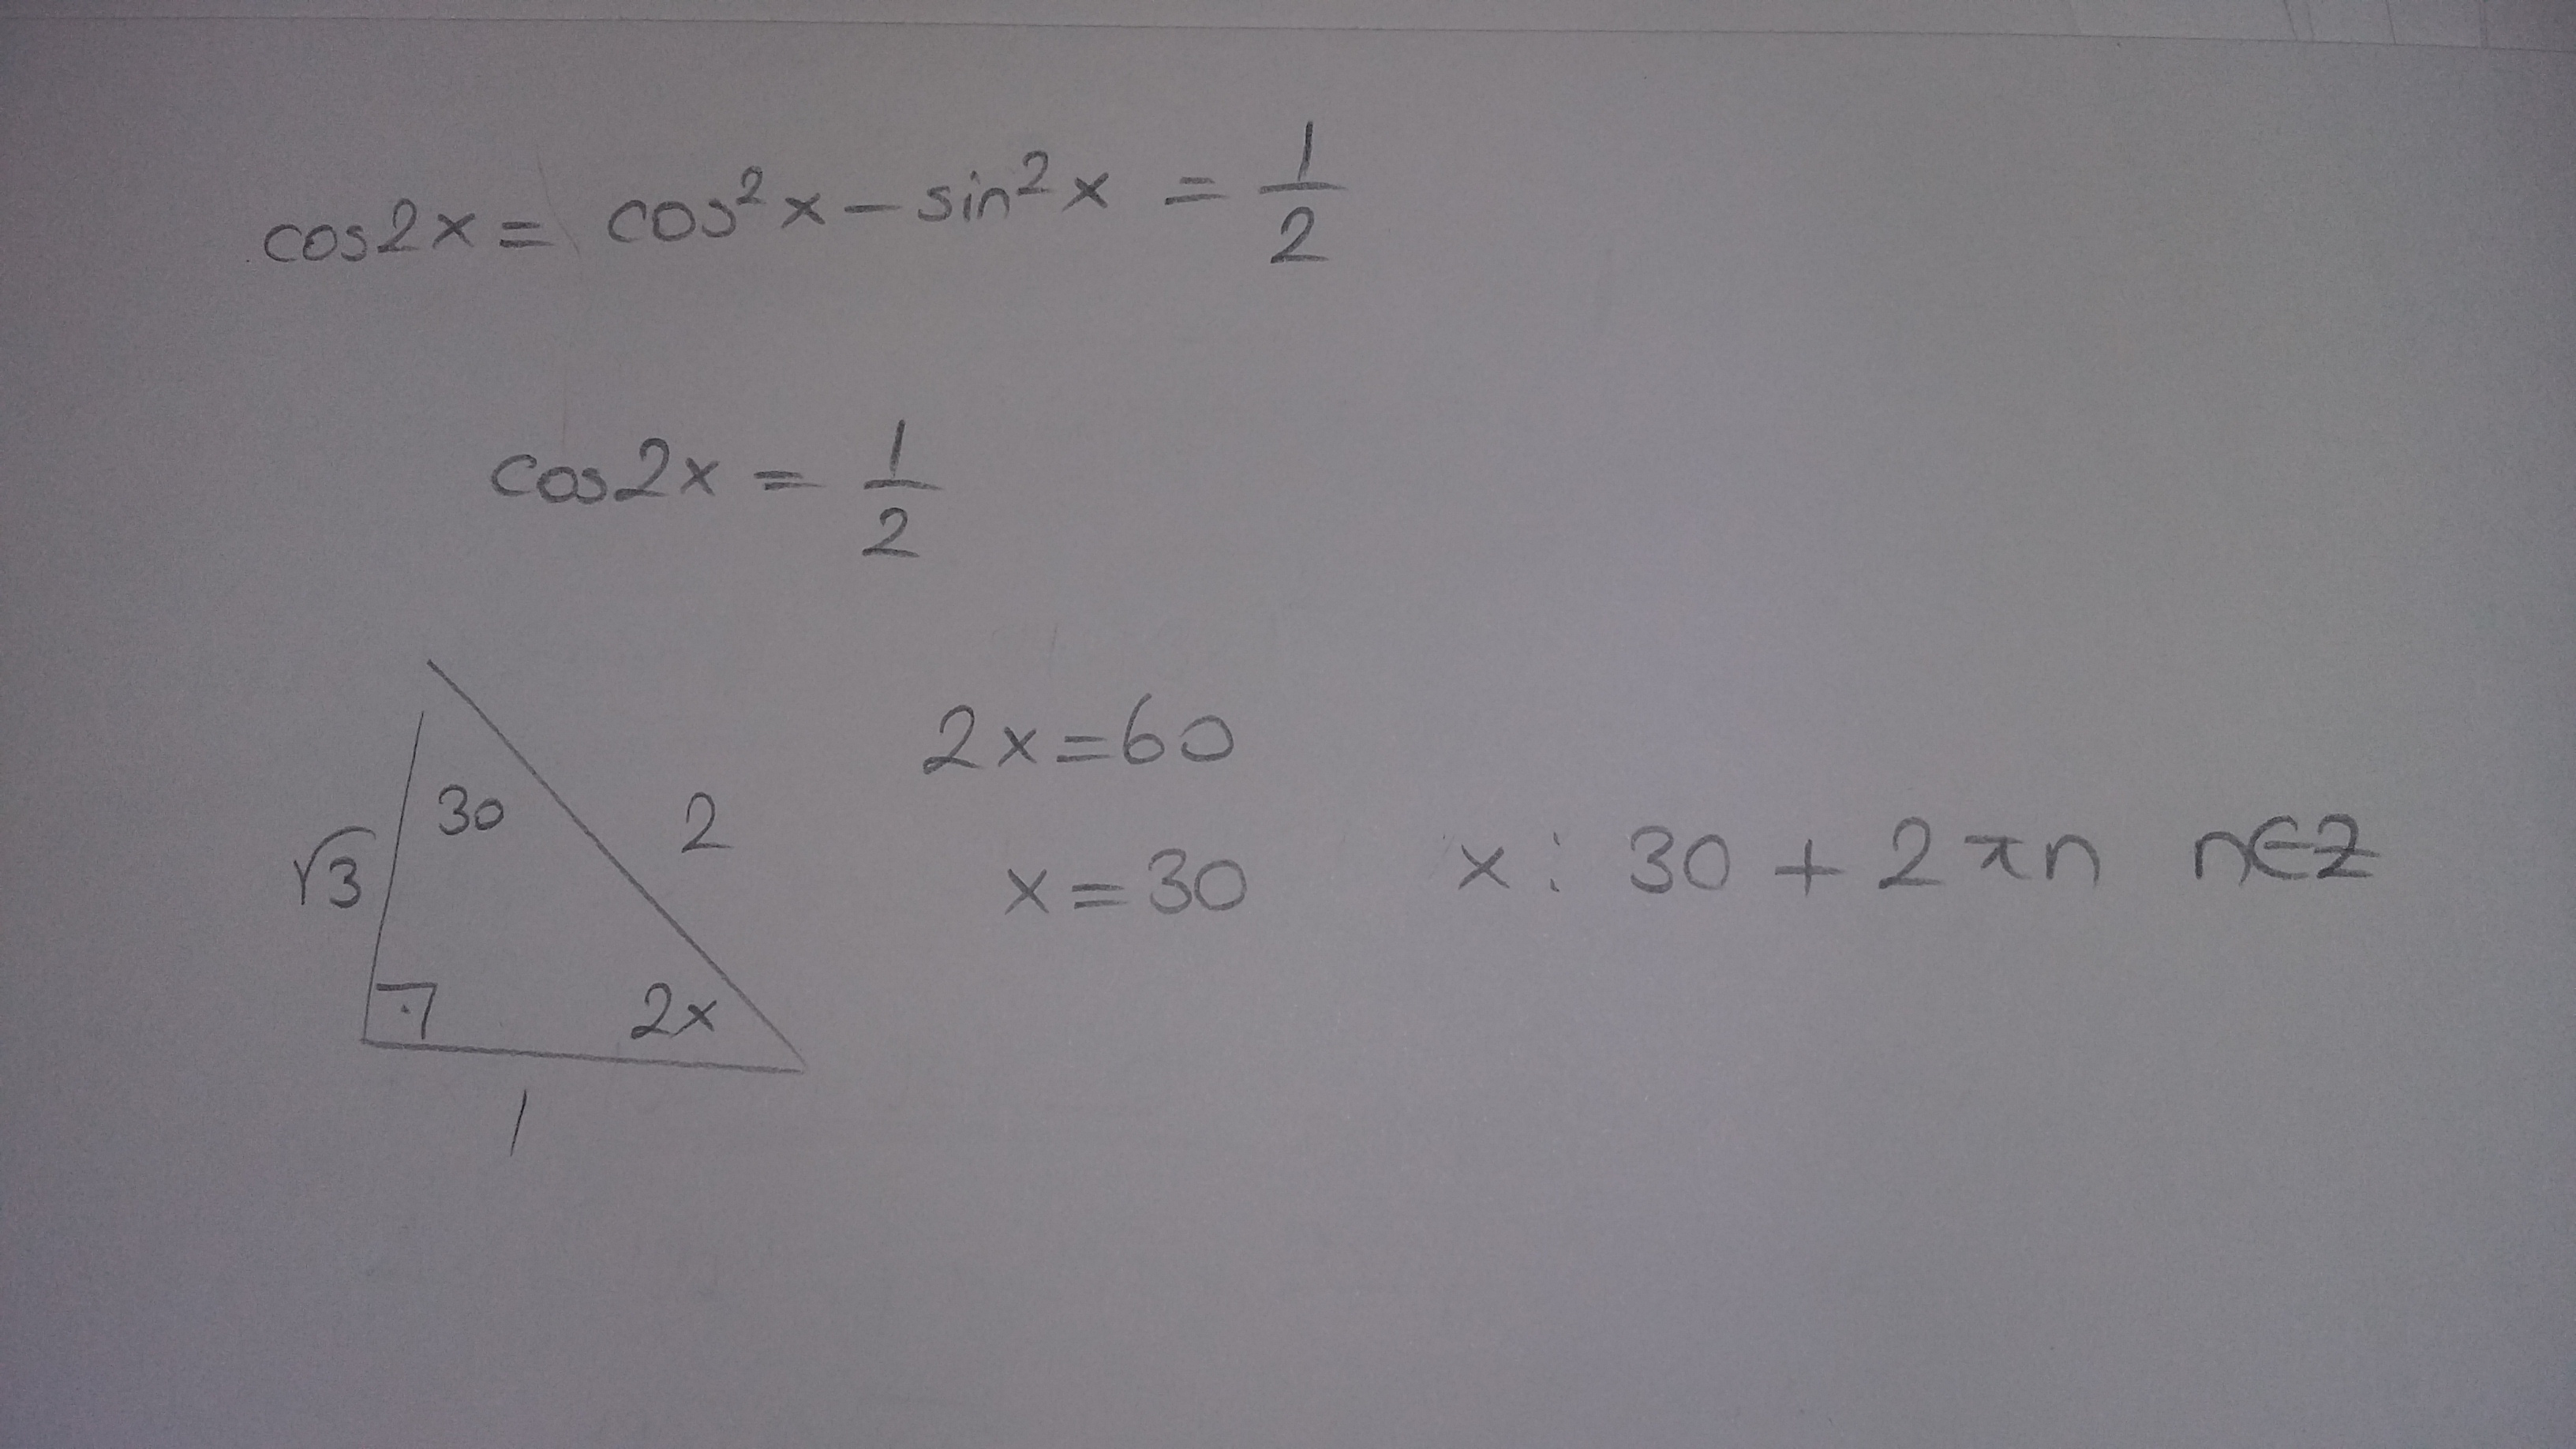 cos2x = cos²x - sin²x = 1/2
cos2x = 1/2
30
√3
2
2x
1
2x=60
x=30
x: 30 + 2πn n∈Z